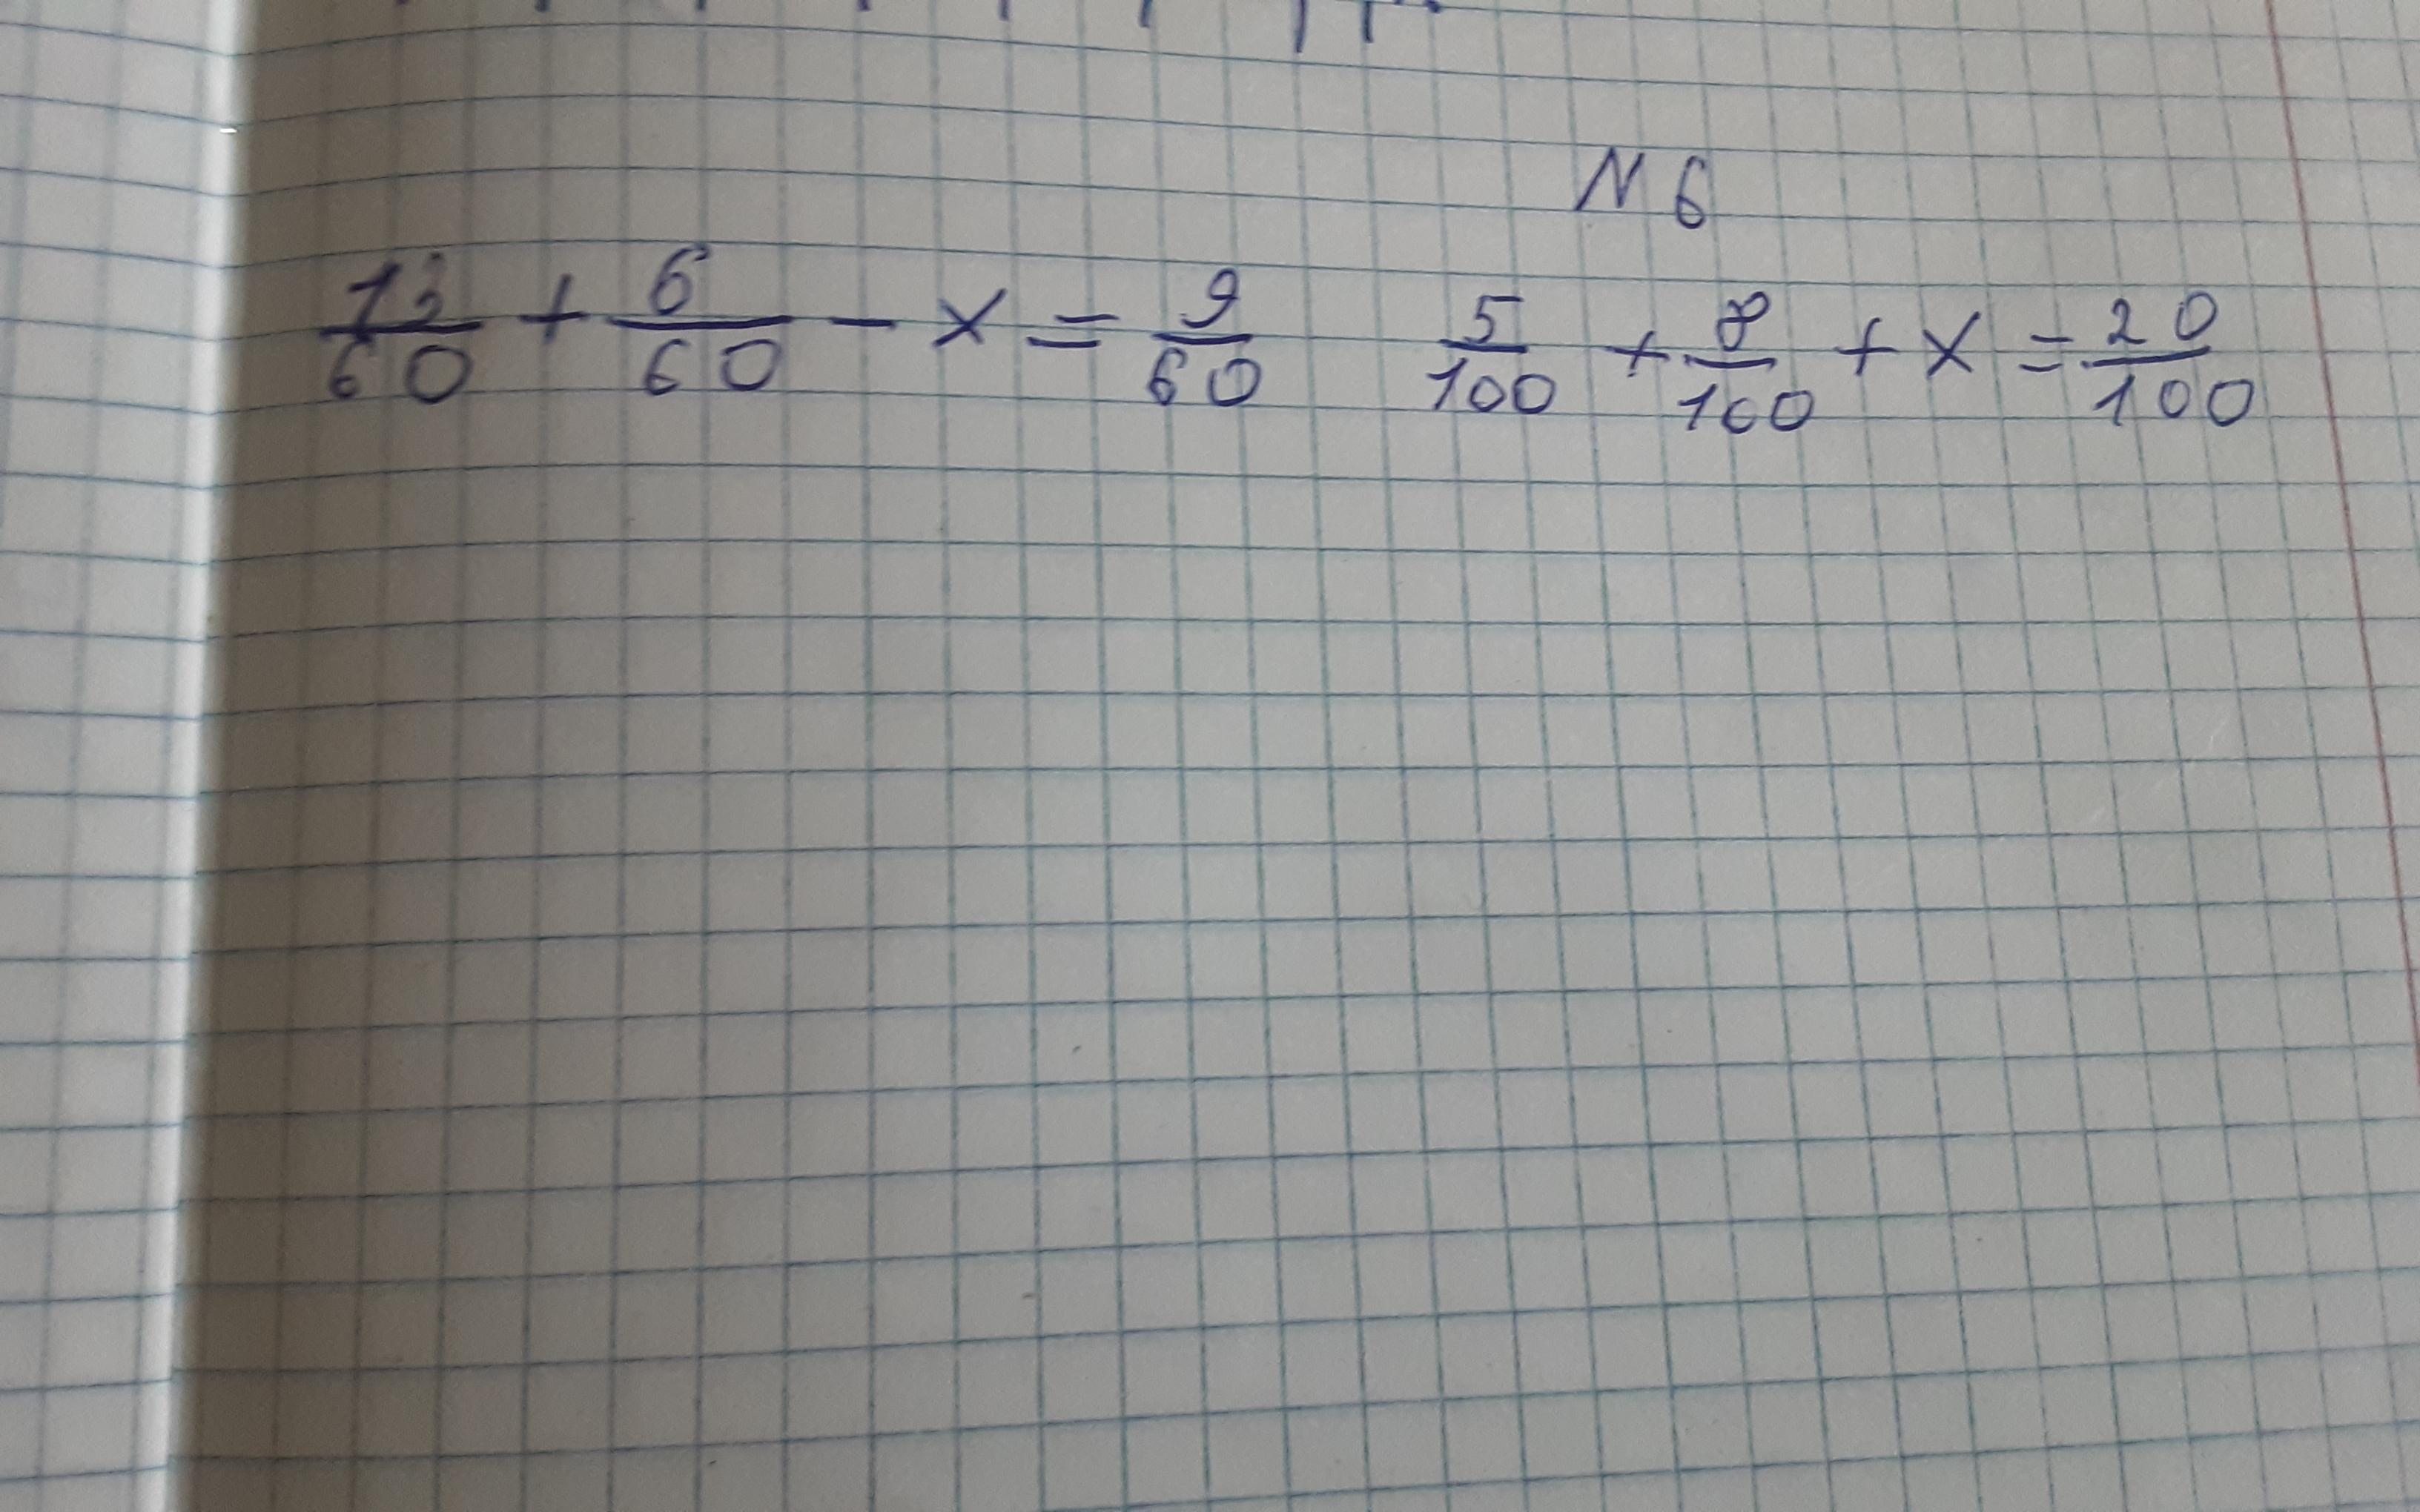 N 6
13/60 + 6/60 - x = 9/60 5/100 + 8/100 + x = 20/100